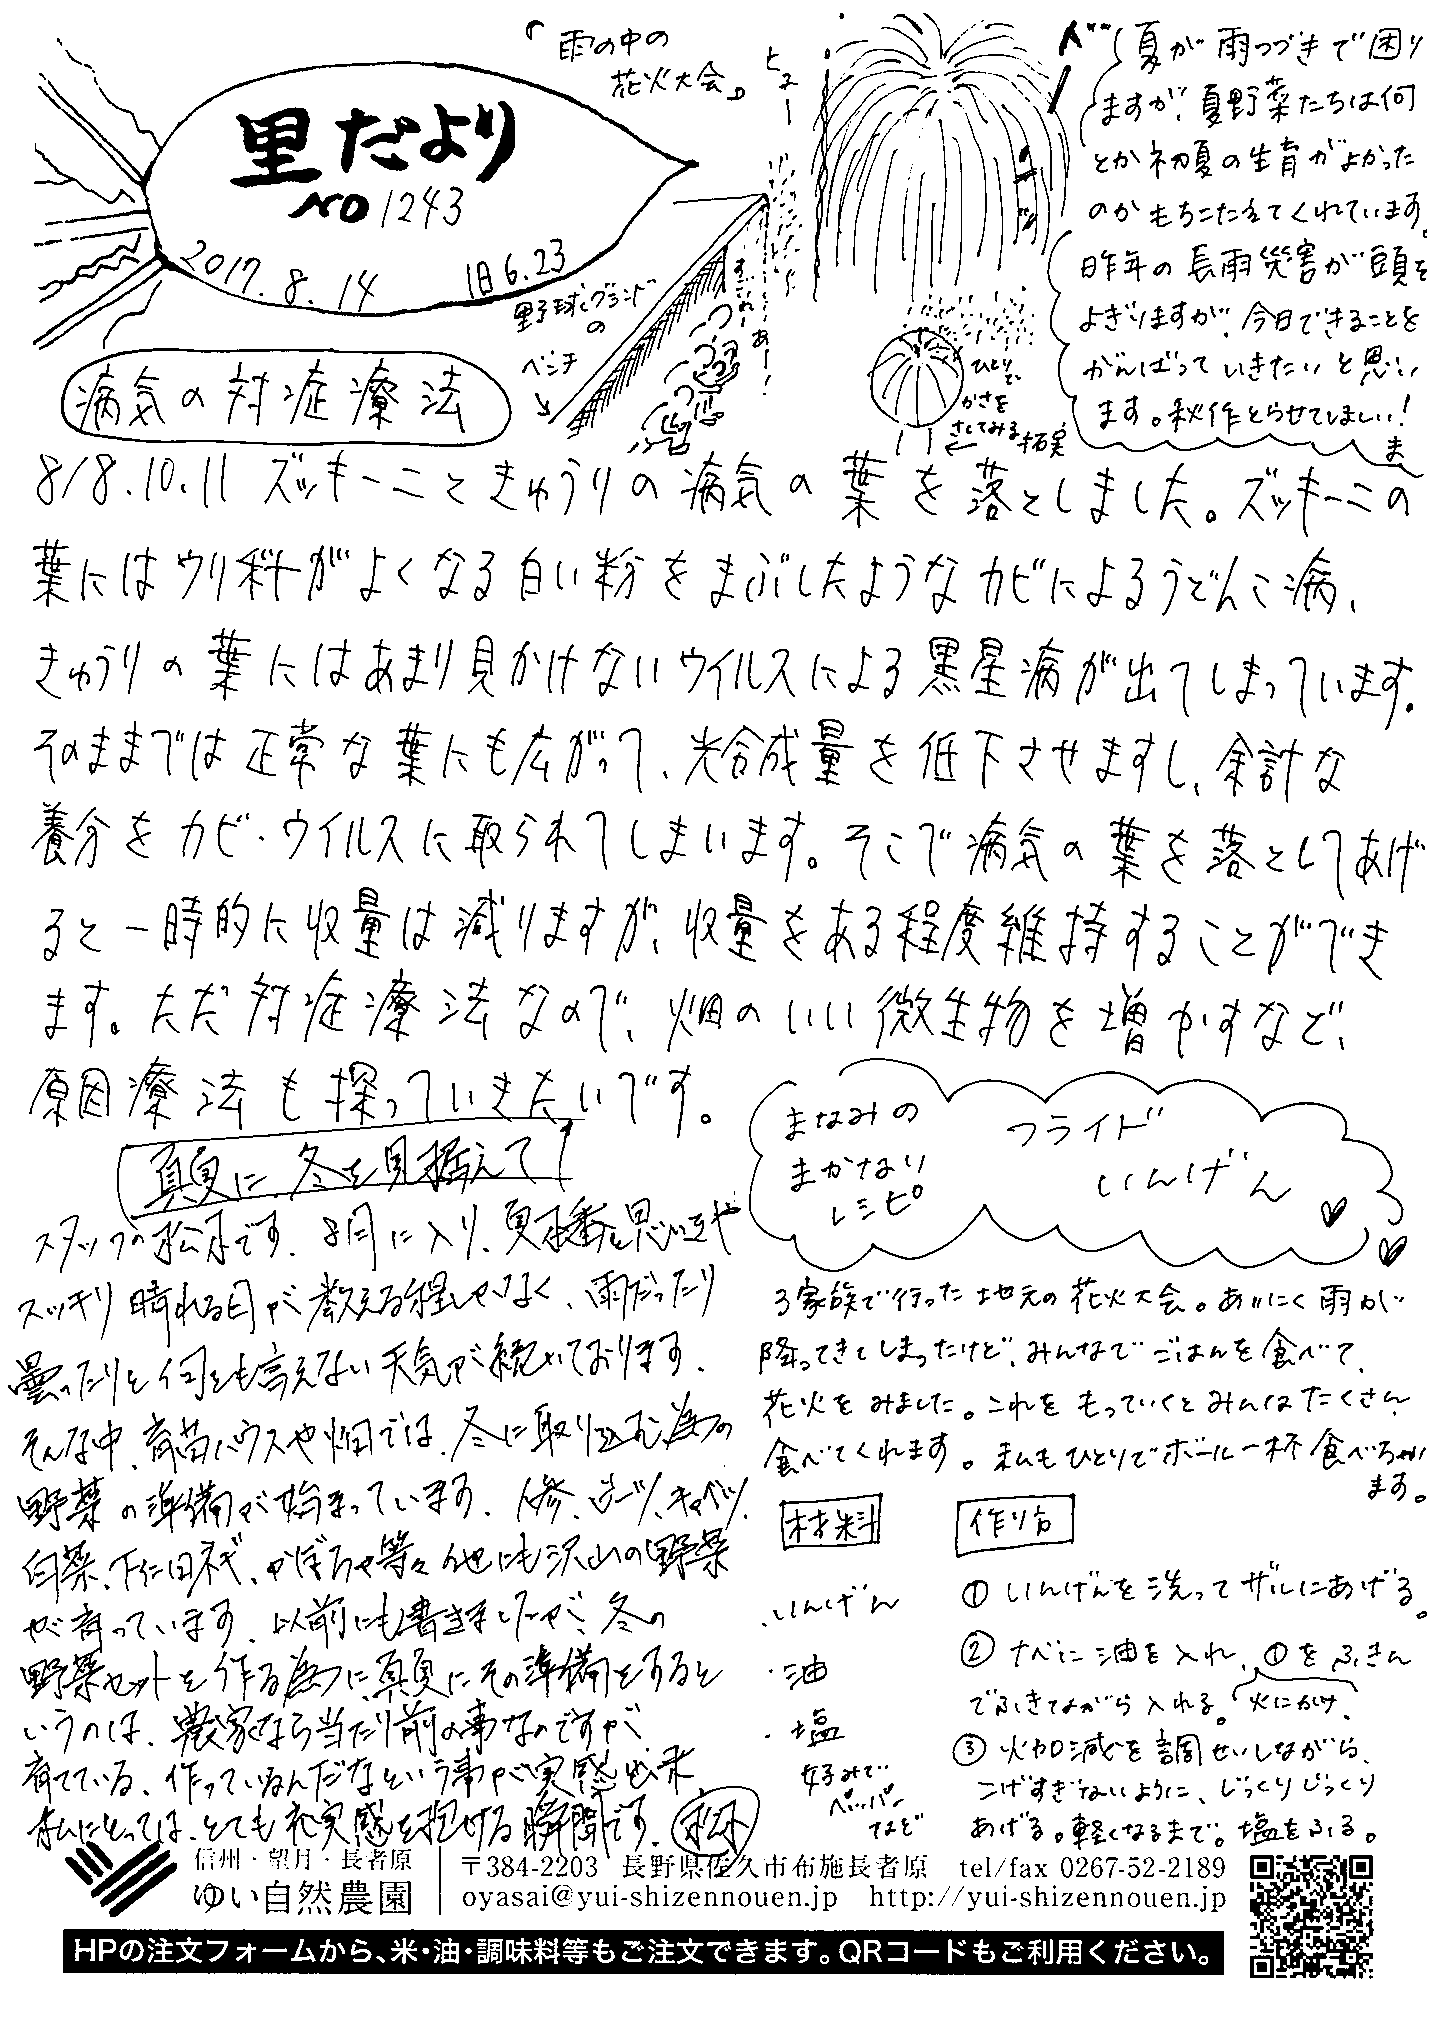 里だより
NO 1243
2017.8.14 旧6.23
「雨の中の
花火大会」
ヒュー
野球グランド
の
ベンチ
ひとりで
かさを
さしてみる
夏が雨つづきで困り
ますが、夏野菜たちは何
とか初夏の生育がよかった
のかもちこたえてくれています。
昨年の長雨災害が頭を
よぎりますが、今日できることを
がんばっていきたいと思い
ます。秋作とらせてほしい!
ま
病気の対症療法
8/8.10.11 ズッキーニときゅうりの病気の葉を落としました。ズッキーニの
葉にはウリ科がよくなる白い粉をまぶしたようなカビによるうどんこ病、
きゅうりの葉にはあまり見かけないウイルスによる黒星病が出てしまっています。
そのままでは正常な葉にも広がって、光合成量を低下させますし、余計な
養分をカビ・ウイルスに取られてしまいます。そこで病気の葉を落としてあげ
ると一時的に収量は減りますが、収量をある程度維持することができ
ます。ただ対症療法なので、畑のいい微生物を増やすなど、
原因療法も探っていきたいです。
真夏に、冬を見据えて
スタッフの松本です。8月に入り、夏本番と思いきや
スッキリ晴れる日が数える程しかなく、雨だったり
曇ったりと何とも言えない天気が続いております。
そんな中、育苗ハウスや畑では、冬に取り込む為の
野菜の準備が始まっています。人参、ビーツ、キャベツ、
白菜、下仁田ネギ、かぼちゃ等々他にも沢山の野菜
が育っています。以前にも書きましたが、冬の
野菜セットを作る為に、真夏にその準備をすると
いうのは、農家なら当たり前の事なのですが、
育てている、作っているんだなという事が実感出来
私にとっては、とても充実感を抱ける瞬間です。松本
まなみの
まかない
レシピ
フライド
いんげん
3家族で行った地元の花火大会。あいにく雨が
降ってきてしまったけど、みんなでごはんを食べて、
花火をみました。これをもっていくとみんなたくさん
食べてくれます。私もひとりでボール一杯食べちゃい
ます。
材料
・いんげん
・油
・塩
好みで
ペッパー
など
作り方
① いんげんを洗ってザルにあげる。
② ナベに油を入れ、①をふきん
でふきながら入れる。火にかけ、
③ 火加減を調せいしながら、
こげすぎないように、じっくりじっくり
あげる。軽くなるまで。塩をふる。
信州・望月・長者原
ゆい自然農園
〒384-2203 長野県佐久市布施長者原 tel/fax 0267-52-2189
oyasai@yui-shizennouen.jp http://yui-shizennouen.jp
HPの注文フォームから、米・油・調味料等もご注文できます。QRコードもご利用ください。